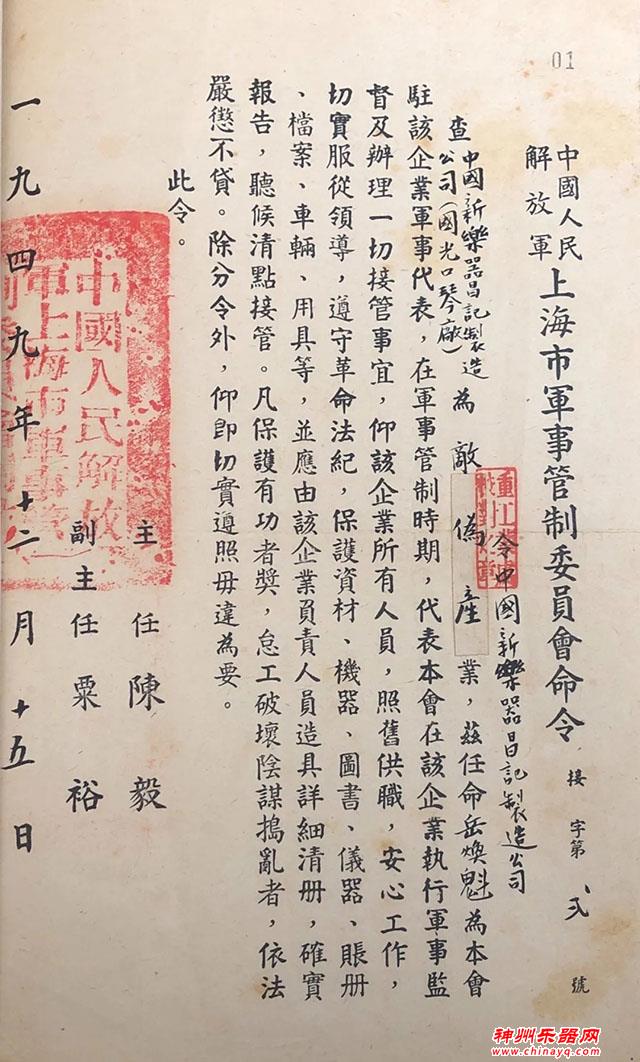 01
中國人民
解放軍
上海市軍事管制委員會命令
接字第弍號
令中國新樂器昌記製造公司
查中國新樂器昌記製造
公司(國光口琴廠)
為敵偽產業，茲任命岳煥魁為本會
駐該企業軍事代表，在軍事管制時期，代表本會在該企業執行軍事監
督及辦理一切接管事宜，仰該企業所有人員，照舊供職，安心工作，
切實服從領導，遵守革命法紀，保護資材、機器、圖書、儀器、賬冊
、檔案、車輛、用具等，並應由該企業負責人員造具詳細清册，確實
報告，聽候清點接管。凡保護有功者獎，怠工破壞陰謀搗亂者，依法
嚴懲不貸。除分令外，仰即切實遵照毋違為要。
此令。
主任陳毅
副主任粟裕
中國人民解放
軍上海市軍事管
一九四九年十二月十五日
神州乐器网
www.chinayq.com